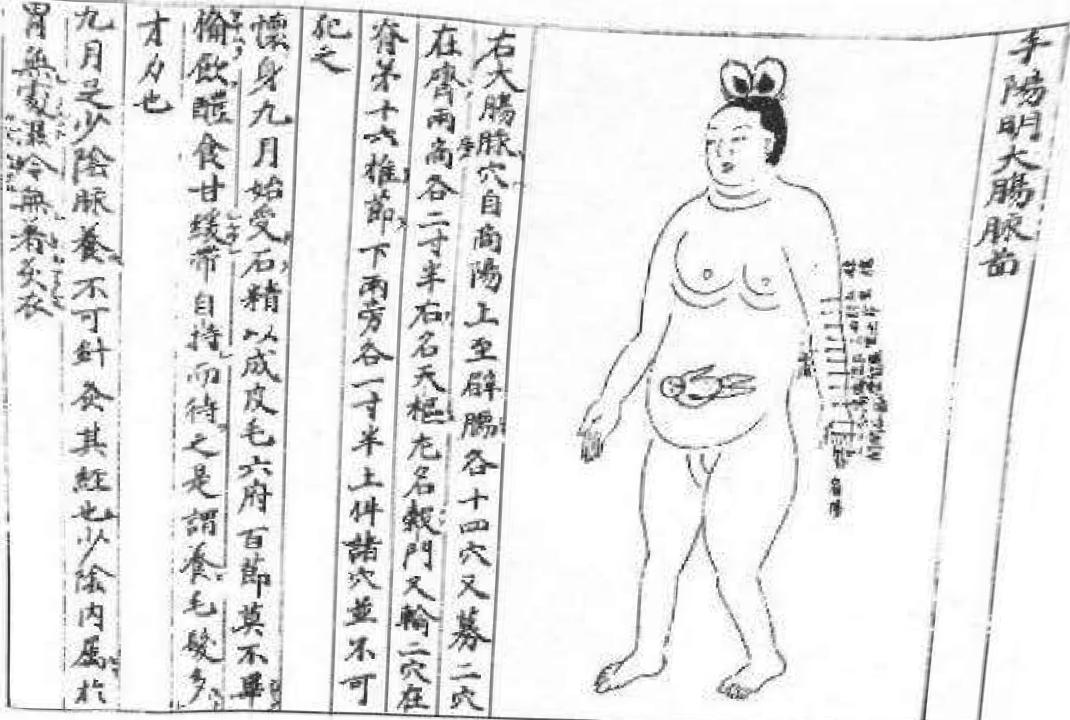 手陽明大腸脉啚
右大腸脉穴自商陽上至臂臑各十四穴又募二穴
在齊兩旁各二寸半右名天樞左名穀門又輸二穴在
脊苐十六椎節下兩旁各一寸半上件諸穴並不可
犯之
懷身九月始受石精以成皮毛六府百節莫不畢
俻飲醴食甘緩帶自持而待之是謂養毛髮多
才力也
九月足少陰脉養不可針灸其経也少陰内属於
胃無處濕冷無着炙衣